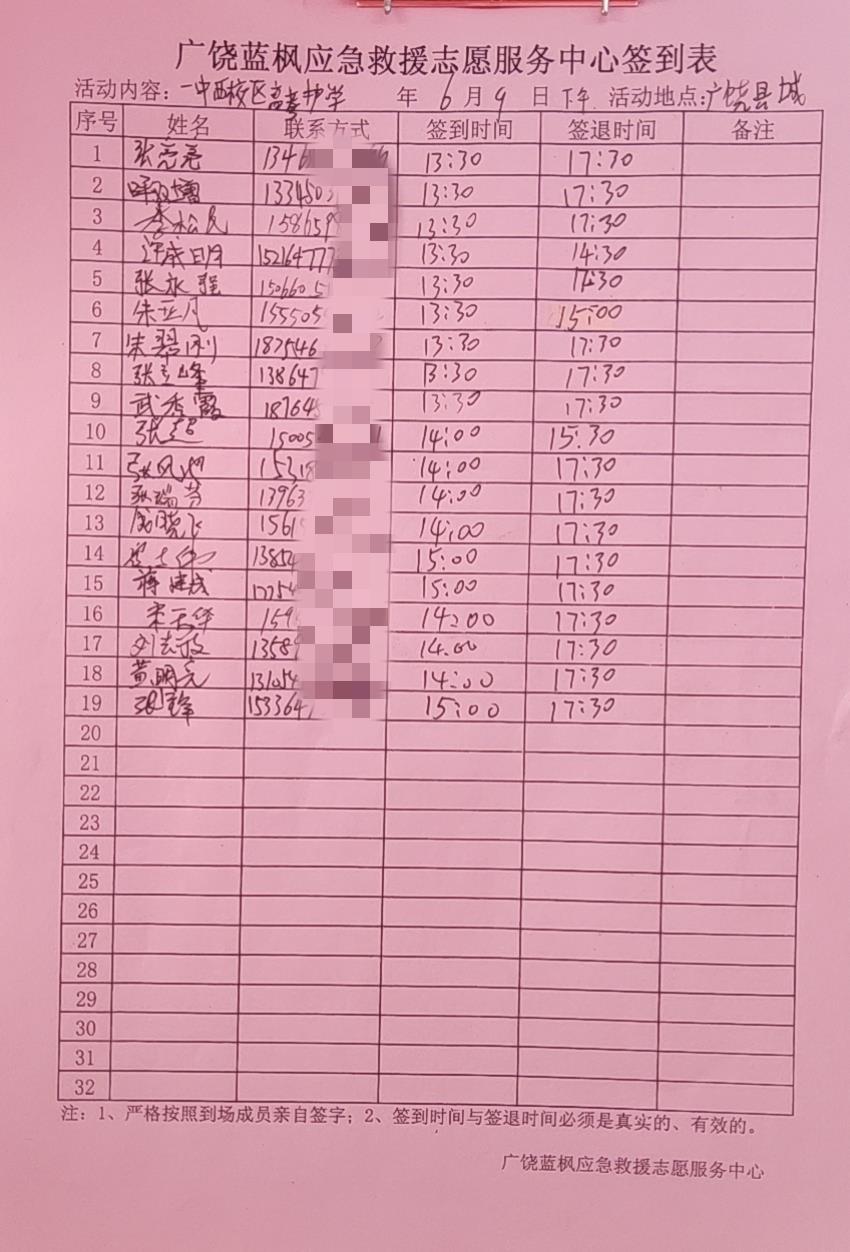 广饶蓝枫应急救援志愿服务中心签到表
活动内容：一中西校区高考护学 年 6 月 9 日 下午 活动地点：广饶县城
序号 姓名 联系方式 签到时间 签退时间 备注
1 张亮亮 1346 13:30 17:30
2 1334503 13:30 17:30
3 李松民 158659 13:30 17:30
4 15216477 13:30 14:30
5 张永强 1506605 13:30 17:30
6 朱亚凡 155505 13:30 15:00
7 朱碧刚 187546 13:30 17:30
8 张立峰 138647 13:30 17:30
9 武秀霞 18764 13:30 17:30
10 张超 15005 14:00 15:30
11 1531 14:00 17:30
12 耿瑞芳 13963 14:00 17:30
13 晓飞 1561 14:00 17:30
14 13854 15:00 17:30
15 蒋建成 17754 15:00 17:30
16 宋云华 159 14:00 17:30
17 刘志敏 1358 14:00 17:30
18 黄明亮 131054 14:00 17:30
19 张锋 1533647 15:00 17:30
20
21
22
23
24
25
26
27
28
29
30
31
32
注：1、严格按照到场成员亲自签字；2、签到时间与签退时间必须是真实的、有效的。
广饶蓝枫应急救援志愿服务中心